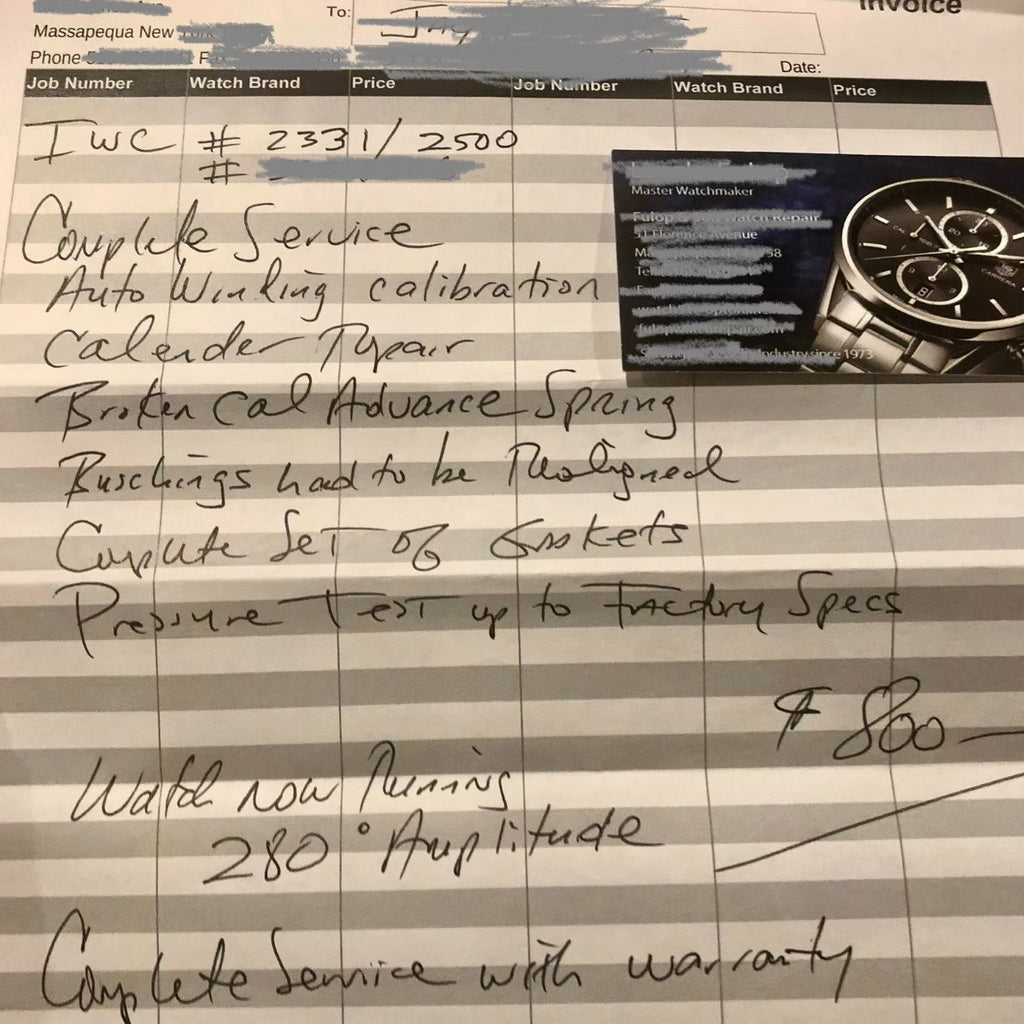 Invoice
To:
Massapequa New
Phone
Date:
Job Number Watch Brand Price Job Number Watch Brand Price
IWC # 2331/2500
#
Complete Service
Auto Winding calibration
Calender Repair
Broken Cal Advance Spring
Buschings had to be Realigned
Complete Set of Gaskets
Pressure Test up to Factory Specs
$ 800 —
Watch now Running
280° Amplitude
Complete Service with warranty
Master Watchmaker
Fulop & Watch Repair
51 Florence Avenue
Industry since 1973
CARRERA